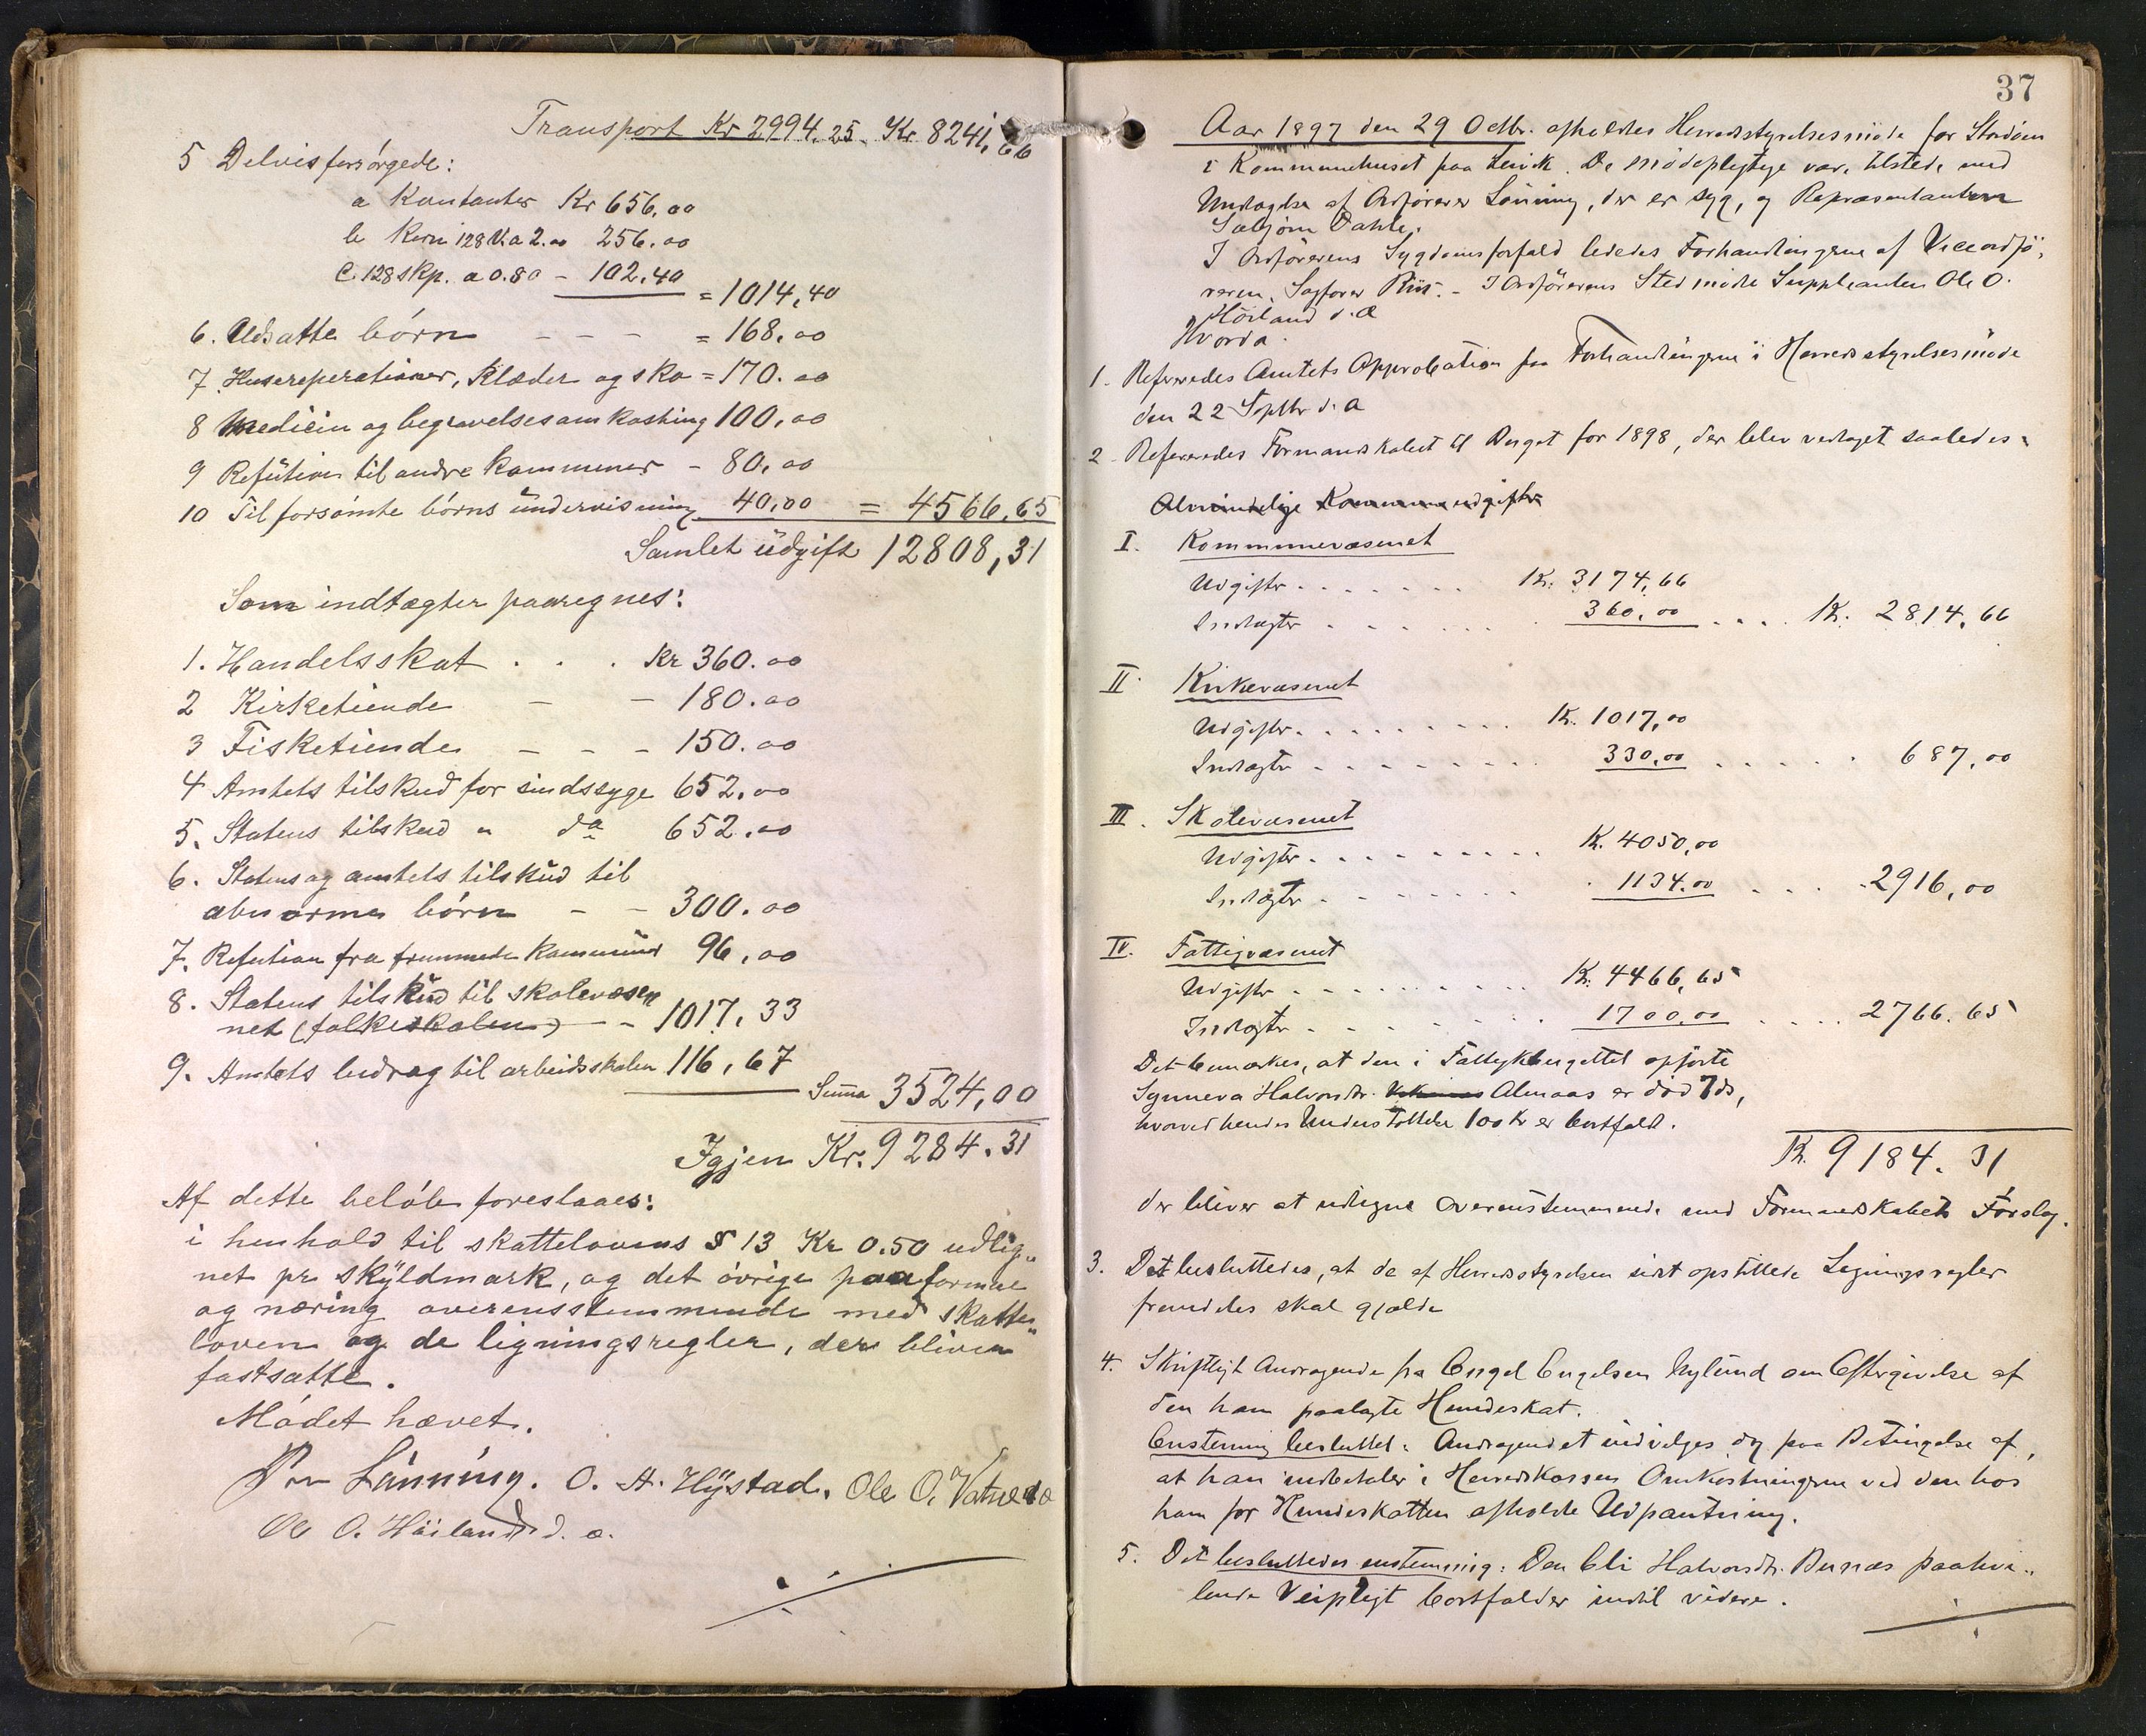 Transport Kr 2994.25. Kr 8241,66
5 Delvis forsørgede:
a Kontanter Kr 656,00
b Korn 128 V. a 2.00 256.00
c. 128 skp. a 0.80 - 102.40
= 1014,40
6. Udsatte børn - - - = 168.00
7 Husereperationer, Klæder og sko = 170.00
8 Medicin og begravelsesomkostning 100,00
9 Refution til andre kommuner - 80,00
10 Til forsømte børns undervisning 40,00 = 4566,65
Samlet udgift 12808,31
Som indtægter paaregnes:
1. Handelsskat . . . Kr 360.00
2 Kirketiende - - 180.00
3 Fisketiende - - - 150.00
4 Amtets tilskud for sindssyge 652.00
5. Statens tilskud " do 652.00
6. Statens og amtets tilskud til
abnorme børn - - 300.00
7. Refution fra fremmede kommuner 96,00
8. Statens tilskud til skolevæsen
net (folkeskolen) - - 1017,33
9. Amtets bidrag til arbeidsskolen 116,67
Suma 3524,00
Igjen Kr. 9284.31
Af dette beløb foreslaaes:
i henhold til skattelovens § 13 Kr 0.50 udlig„
net pr skyldmark, og det øvrige paa formue
og næring overensstemmende med skatte„
loven og de ligningsregler, der bliver
fastsatte.
Mødet hævet.
Lønning. O. A. Hystad. Ole O. Vatne
Ole O. Høiland d. æ.
37
Aar 1897 den 29 Octbr. afholdtes Herredsstyrelsesmøde for Stordøen
i Kommunehuset paa Lervik. De mødepligtige var tilstede med
Undtagelse af Ordfører Lønning, der er syg, og Repræsentanten
Sæbjørn Dahle.
I Ordførerens Sygdomsforfald lededes Forhandlingerne af Viceordfø-
reren, Sagfører Riis. - I Ordførerens Sted mødte Suppleanten Ole O.
Høiland d. æ
Hvorda:
1. Refereredes Amtets Approbation paa Forhandlingerne i Herredsstyrelsesmøde
den 22 Septbr d. a
2 Refereredes Formandskabet til Burget for 1898, der blev vedtaget saaledes:
Almindelige Kommuneudgifter
I. Kommunevæsenet
Udgifter . . . . . . . Kr. 3174,66
Indtægter . . . . . . . 360,00 . . . . Kr. 2814,66
II. Kirkevæsenet
Udgifter . . . . . . . . . Kr. 1017,00
Indtægter . . . . . . . . 330,00 . . . . . . 687,00
III. Skolevæsenet
Udgifter . . . . . . . . . Kr. 4050,00
Indtægter . . . . . . . 1134.00 . . . . 2916,00
IV. Fattigvæsenet
Udgifter . . . . . . . . . Kr. 4466,65
Indtægter . . . . . . . . 1700,00 . . . . 2766.65
Det bemærkes, at den i Fattigbugettet opførte
Synneva Halvorsdtr. Almaas er død 7 ds,
hvorved hendes Understøttelse 100 kr er bortfaldt.
Kr. 9184.31
der bliver at udligne overensstemmende med Formandskabets Forslag.
3. Det besluttedes, at de af Herredsstyrelsen sidst opstillede Ligningsregler
fremdeles skal gjælde
4. Skriftligt Andragende fra Engel Engelsen Nylund om Eftergivelse af
den ham paalagte Hundeskat.
Enstemmig besluttet: Andragendet indvilges dog paa Betingelse af,
at han indbetaler i Herredskassen Omkostningerne ved den hos
ham for Hundeskatten afholdte Udpantning.
5. Det besluttedes enstemmig: Den Eli Halvorsdtr. Bernæs paahvi„
lende Veipligt bortfalder indtil videre.